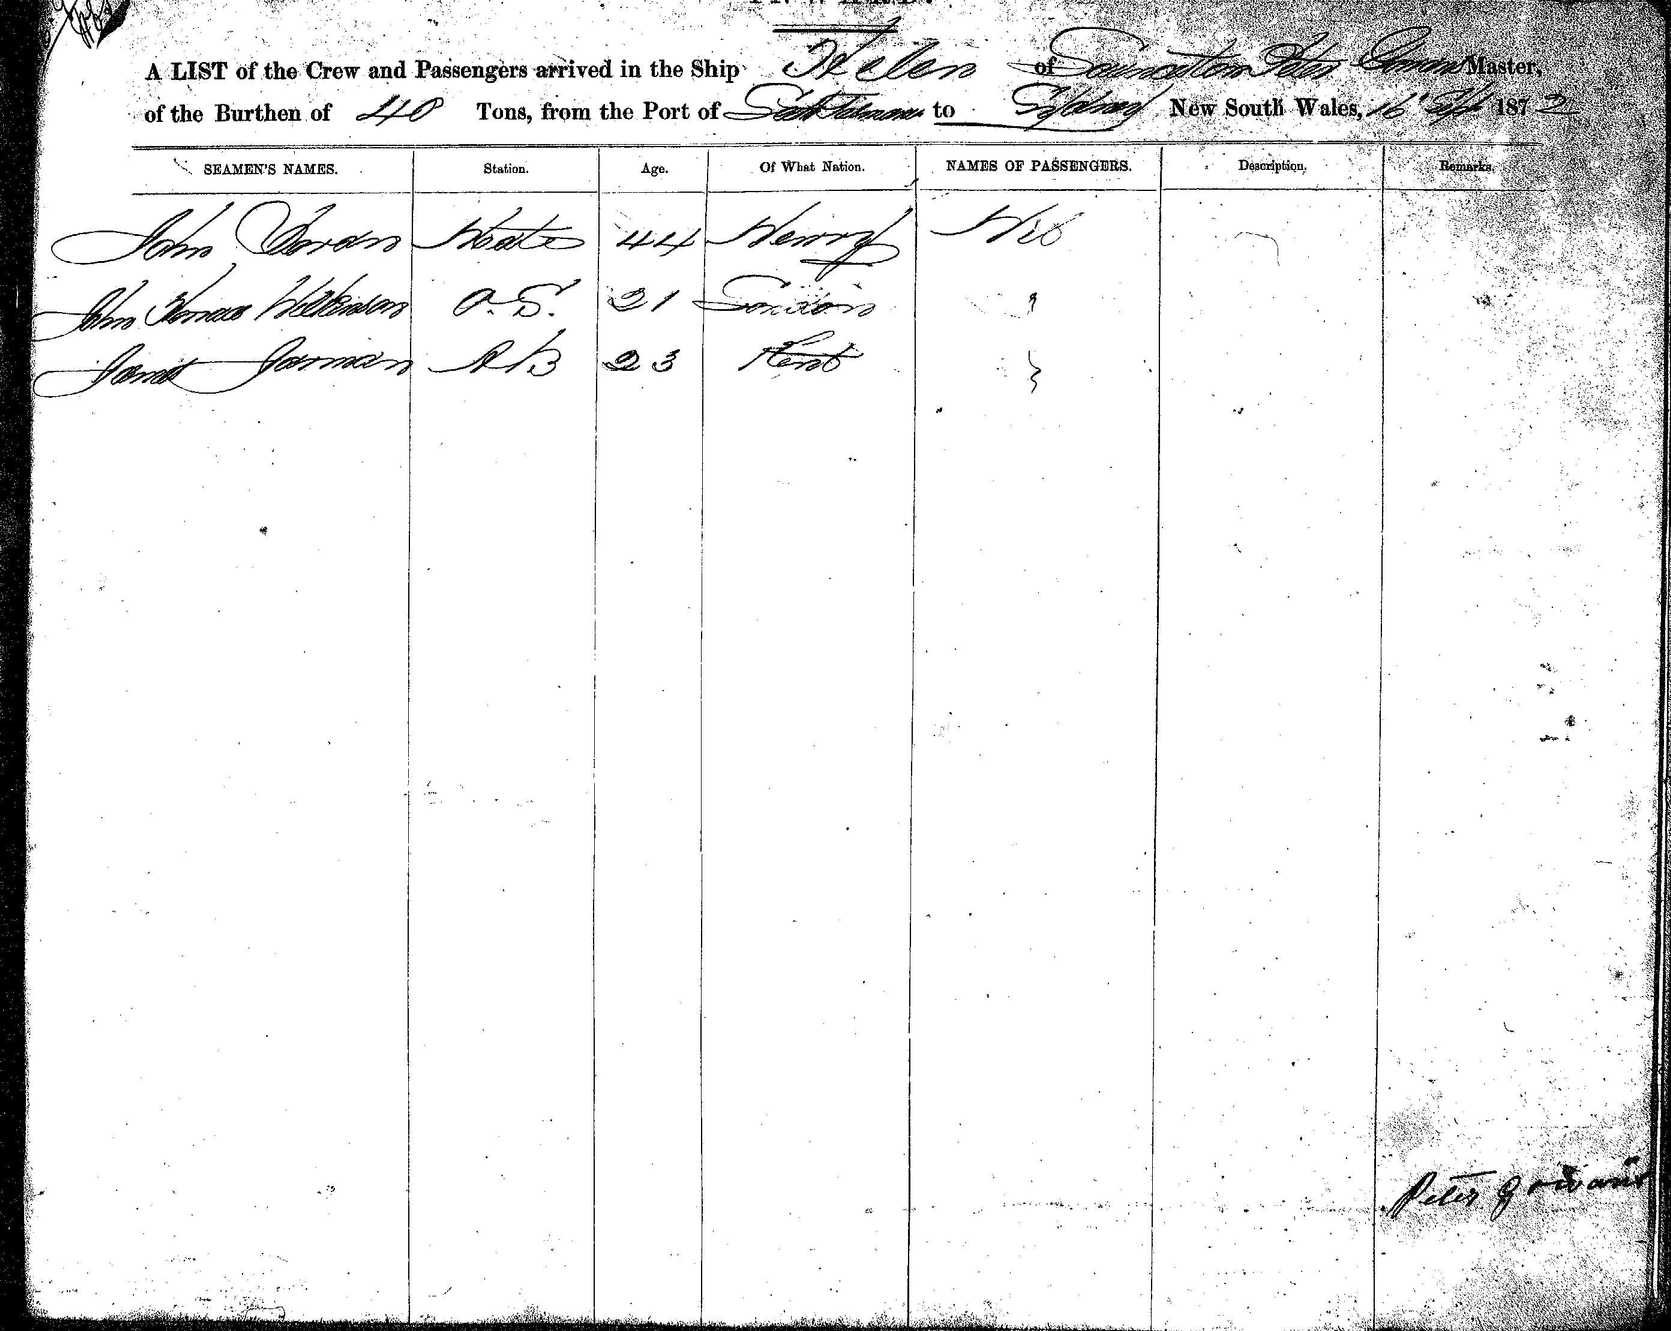 INWARD.
A LIST of the Crew and Passengers arrived in the Ship Helen of Launceston Peter Gowans Master,
of the Burthen of 40 Tons, from the Port of to Sydney New South Wales, 16 Sept 1872
SEAMEN'S NAMES. Station. Age. Of What Nation. NAMES OF PASSENGERS. Description. Remarks.
John Doran Mate 44 Newry Nil
John Thomas Wilkinson O.S. 21 London
James Jarman AB 23 Kent
Peter Gowans